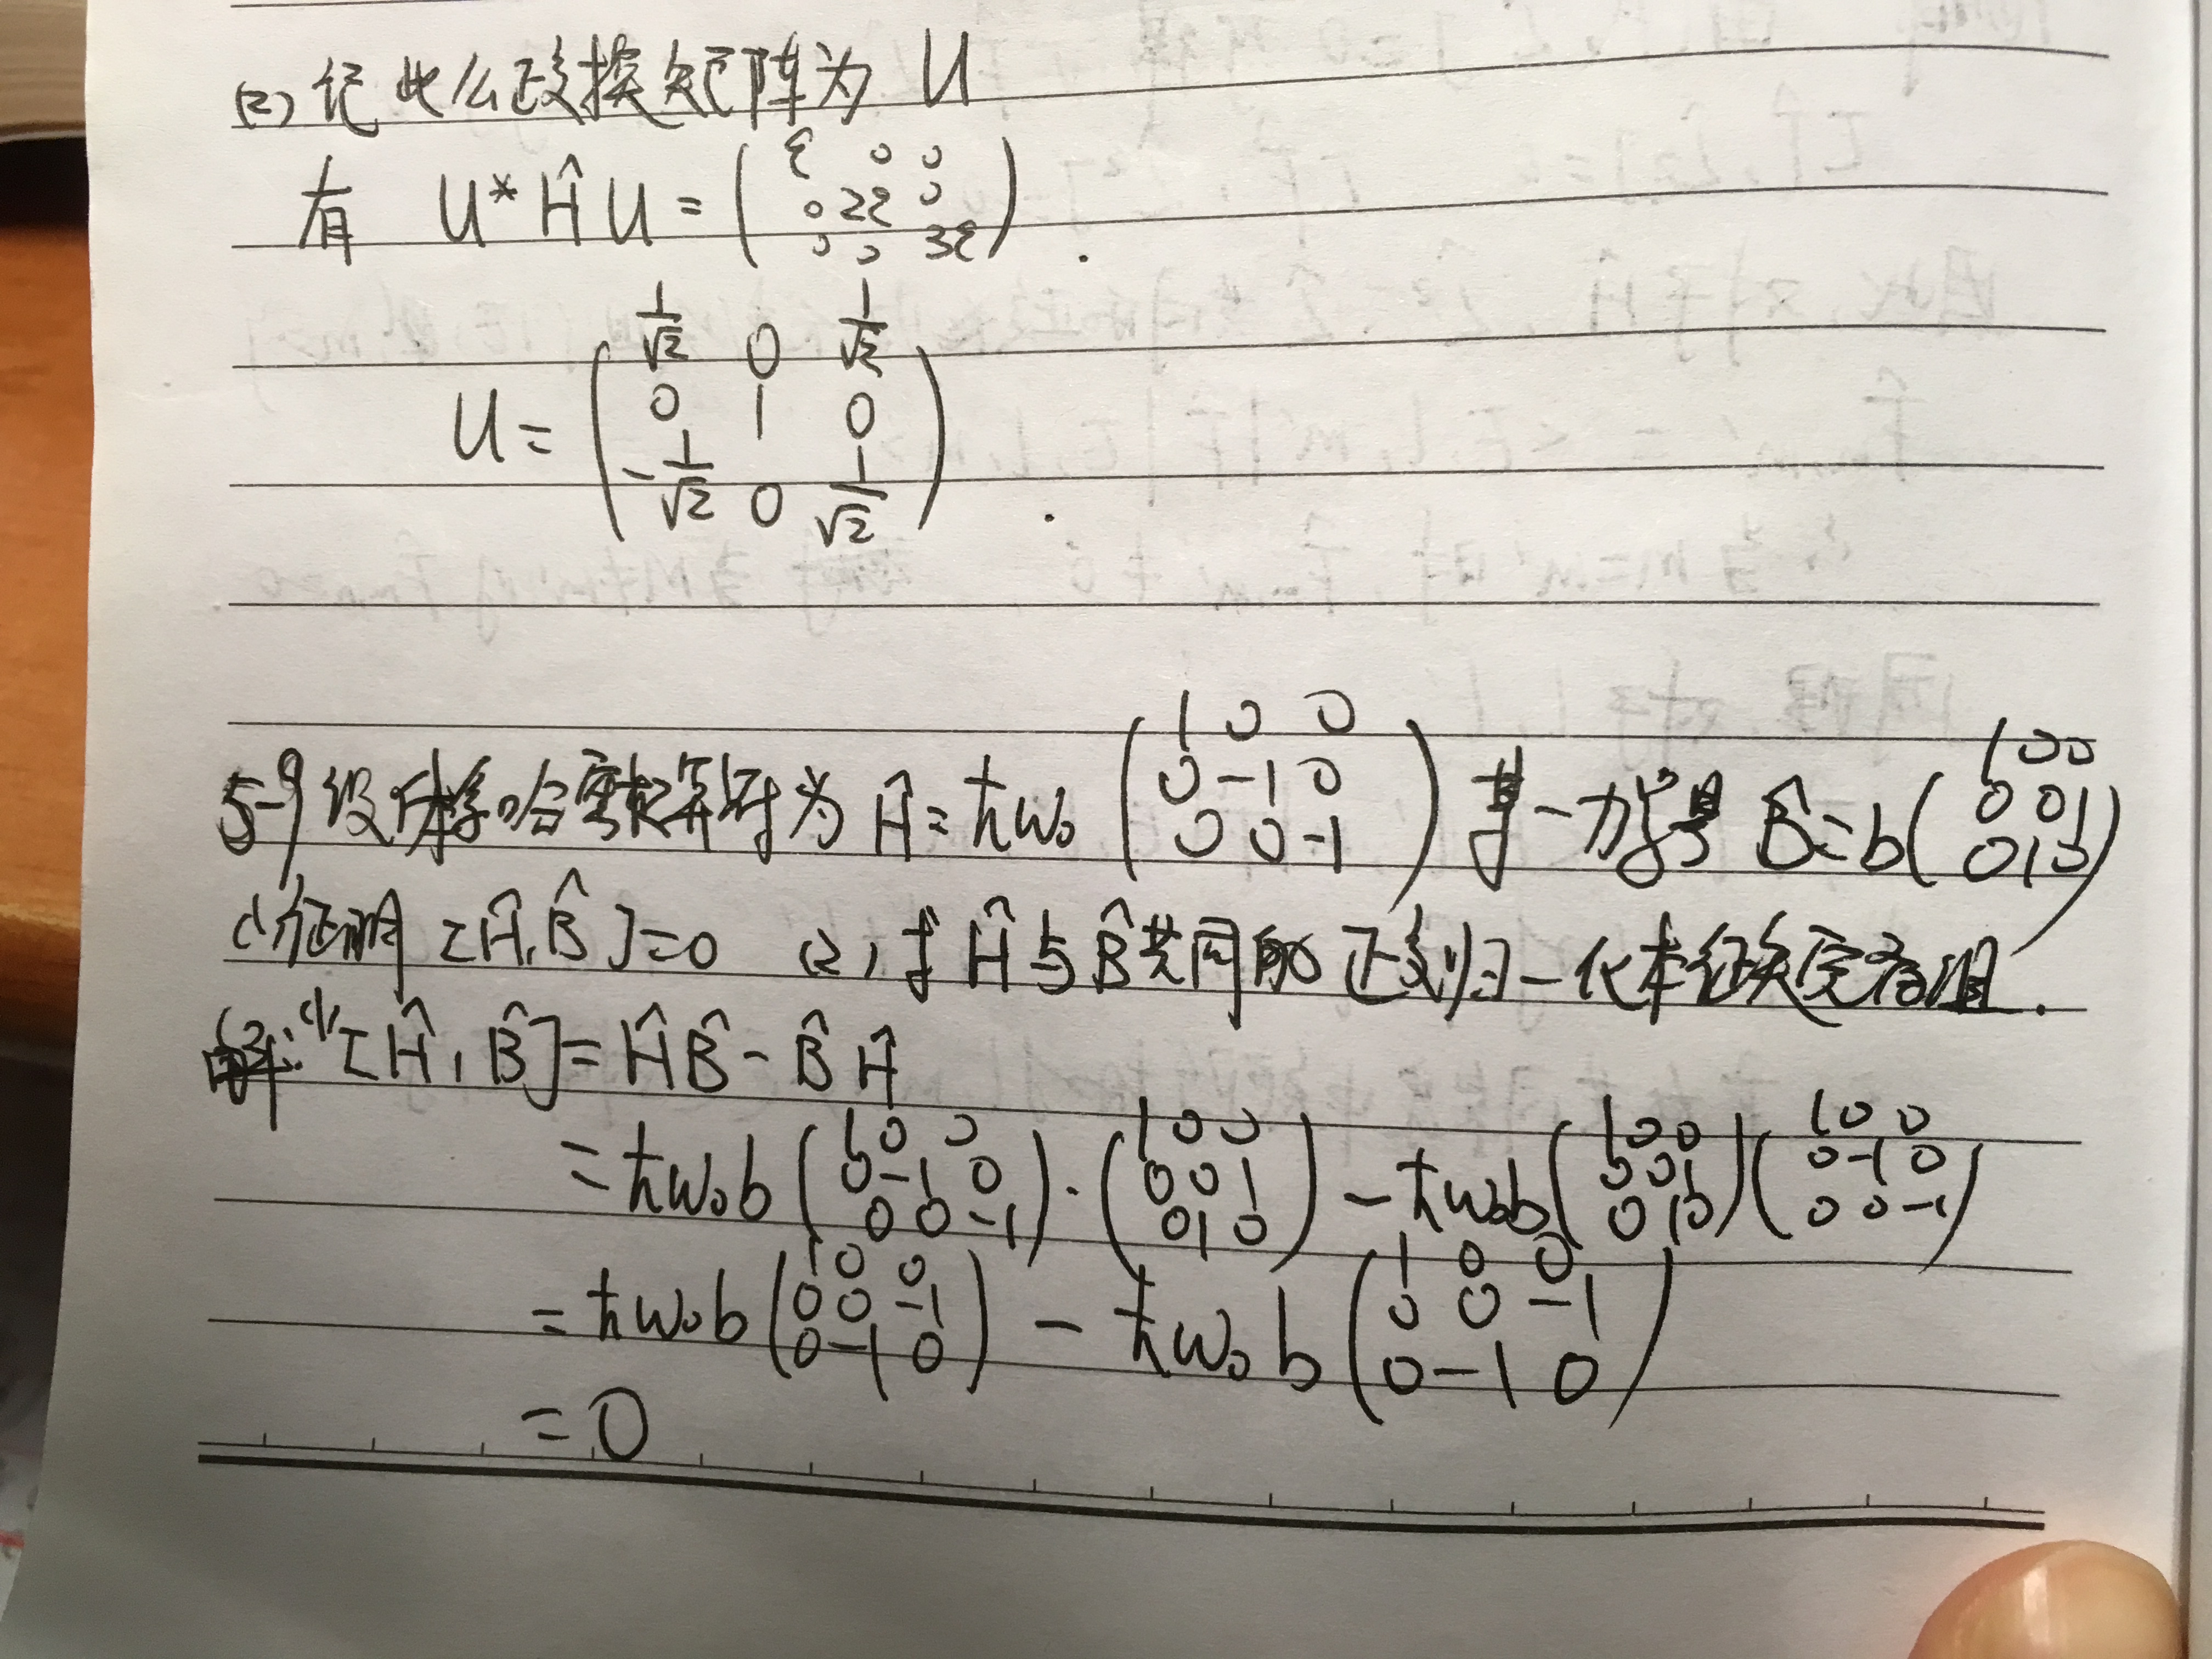 (2) 记此么政换矩阵为 U
有 U* Ĥ U = ( ε 0 0
0 2ε 0
0 0 3ε ) .
U = ( 1/√2 0 1/√2
0 1 0
-1/√2 0 1/√2 ) .
5-9 设体系哈密顿算符为 Ĥ = ħω₀ ( 1 0 0 ; 0 -1 0 ; 0 0 -1 ) 另一力学量 B̂ = b ( 1 0 0 ; 0 0 1 ; 0 1 0 )
(1) 证明 [Ĥ, B̂] = 0 (2) 求 Ĥ 与 B̂ 共同的正交归一化本征矢完备组.
解: (1) [Ĥ, B̂] = ĤB̂ - B̂Ĥ
= ħω₀b ( 1 0 0 ; 0 -1 0 ; 0 0 -1 ) · ( 1 0 0 ; 0 0 1 ; 0 1 0 ) - ħω₀b ( 1 0 0 ; 0 0 1 ; 0 1 0 ) ( 1 0 0 ; 0 -1 0 ; 0 0 -1 )
= ħω₀b ( 1 0 0 ; 0 0 -1 ; 0 -1 0 ) - ħω₀b ( 1 0 0 ; 0 0 -1 ; 0 -1 0 )
= 0